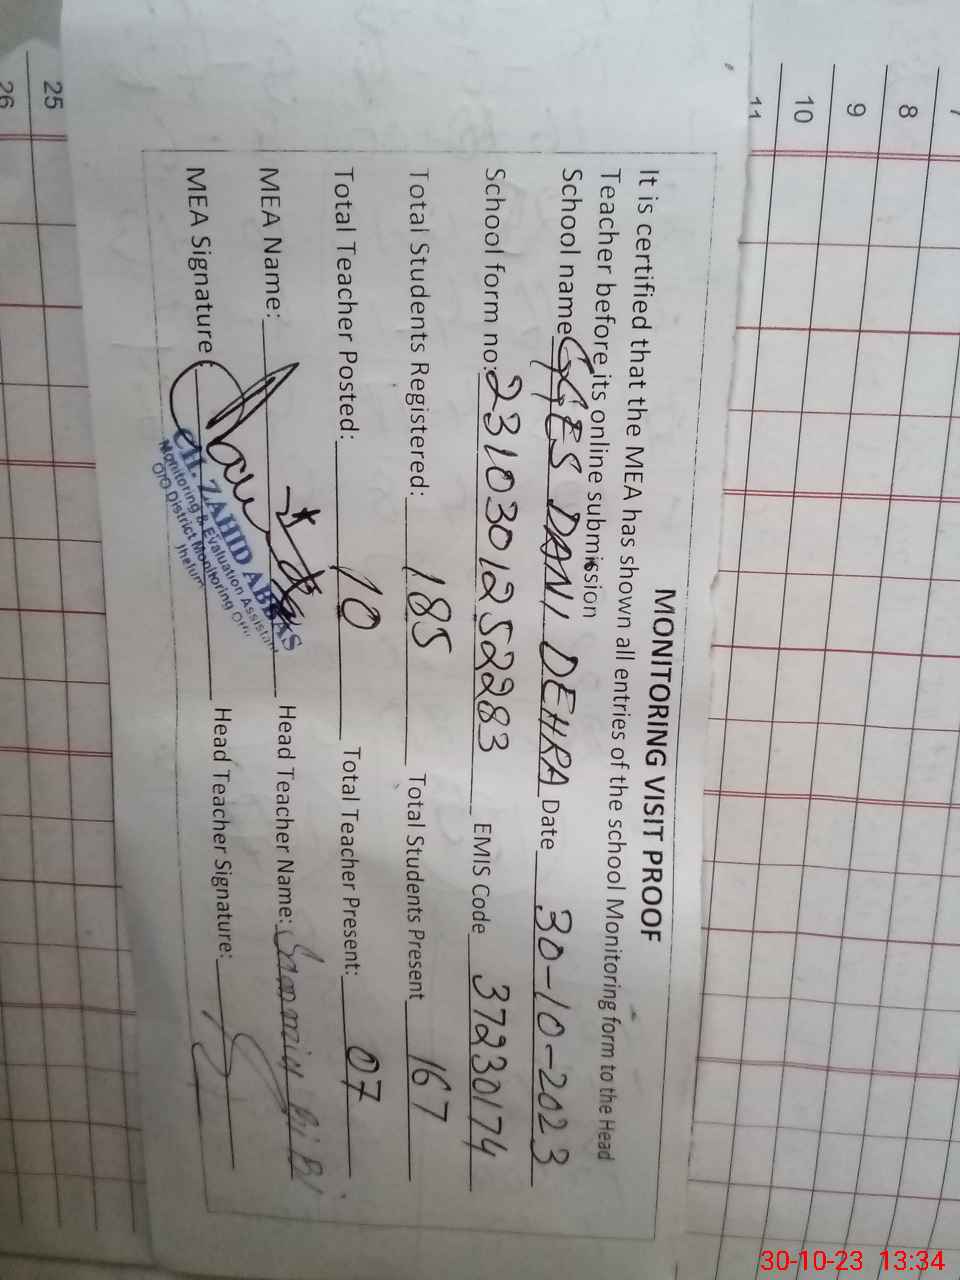 MONITORING VISIT PROOF
It is certified that the MEA has shown all entries of the school Monitoring form to the Head
Teacher before its online submission
School name GGES DANI DEHRA Date 30-10-2023
School form no: 2310301252283 EMIS Code 37230174
Total Students Registered: 185 Total Students Present 167
Total Teacher Posted: 10 Total Teacher Present: 07
MEA Name: Head Teacher Name: Bibi
MEA Signature Head Teacher Signature:
CH. ZAHID ABBAS
Monitoring & Evaluation Assistant
O/O District Monitoring Offi
Jhelum
7
8
9
10
11
25
26
30-10-23 13:34